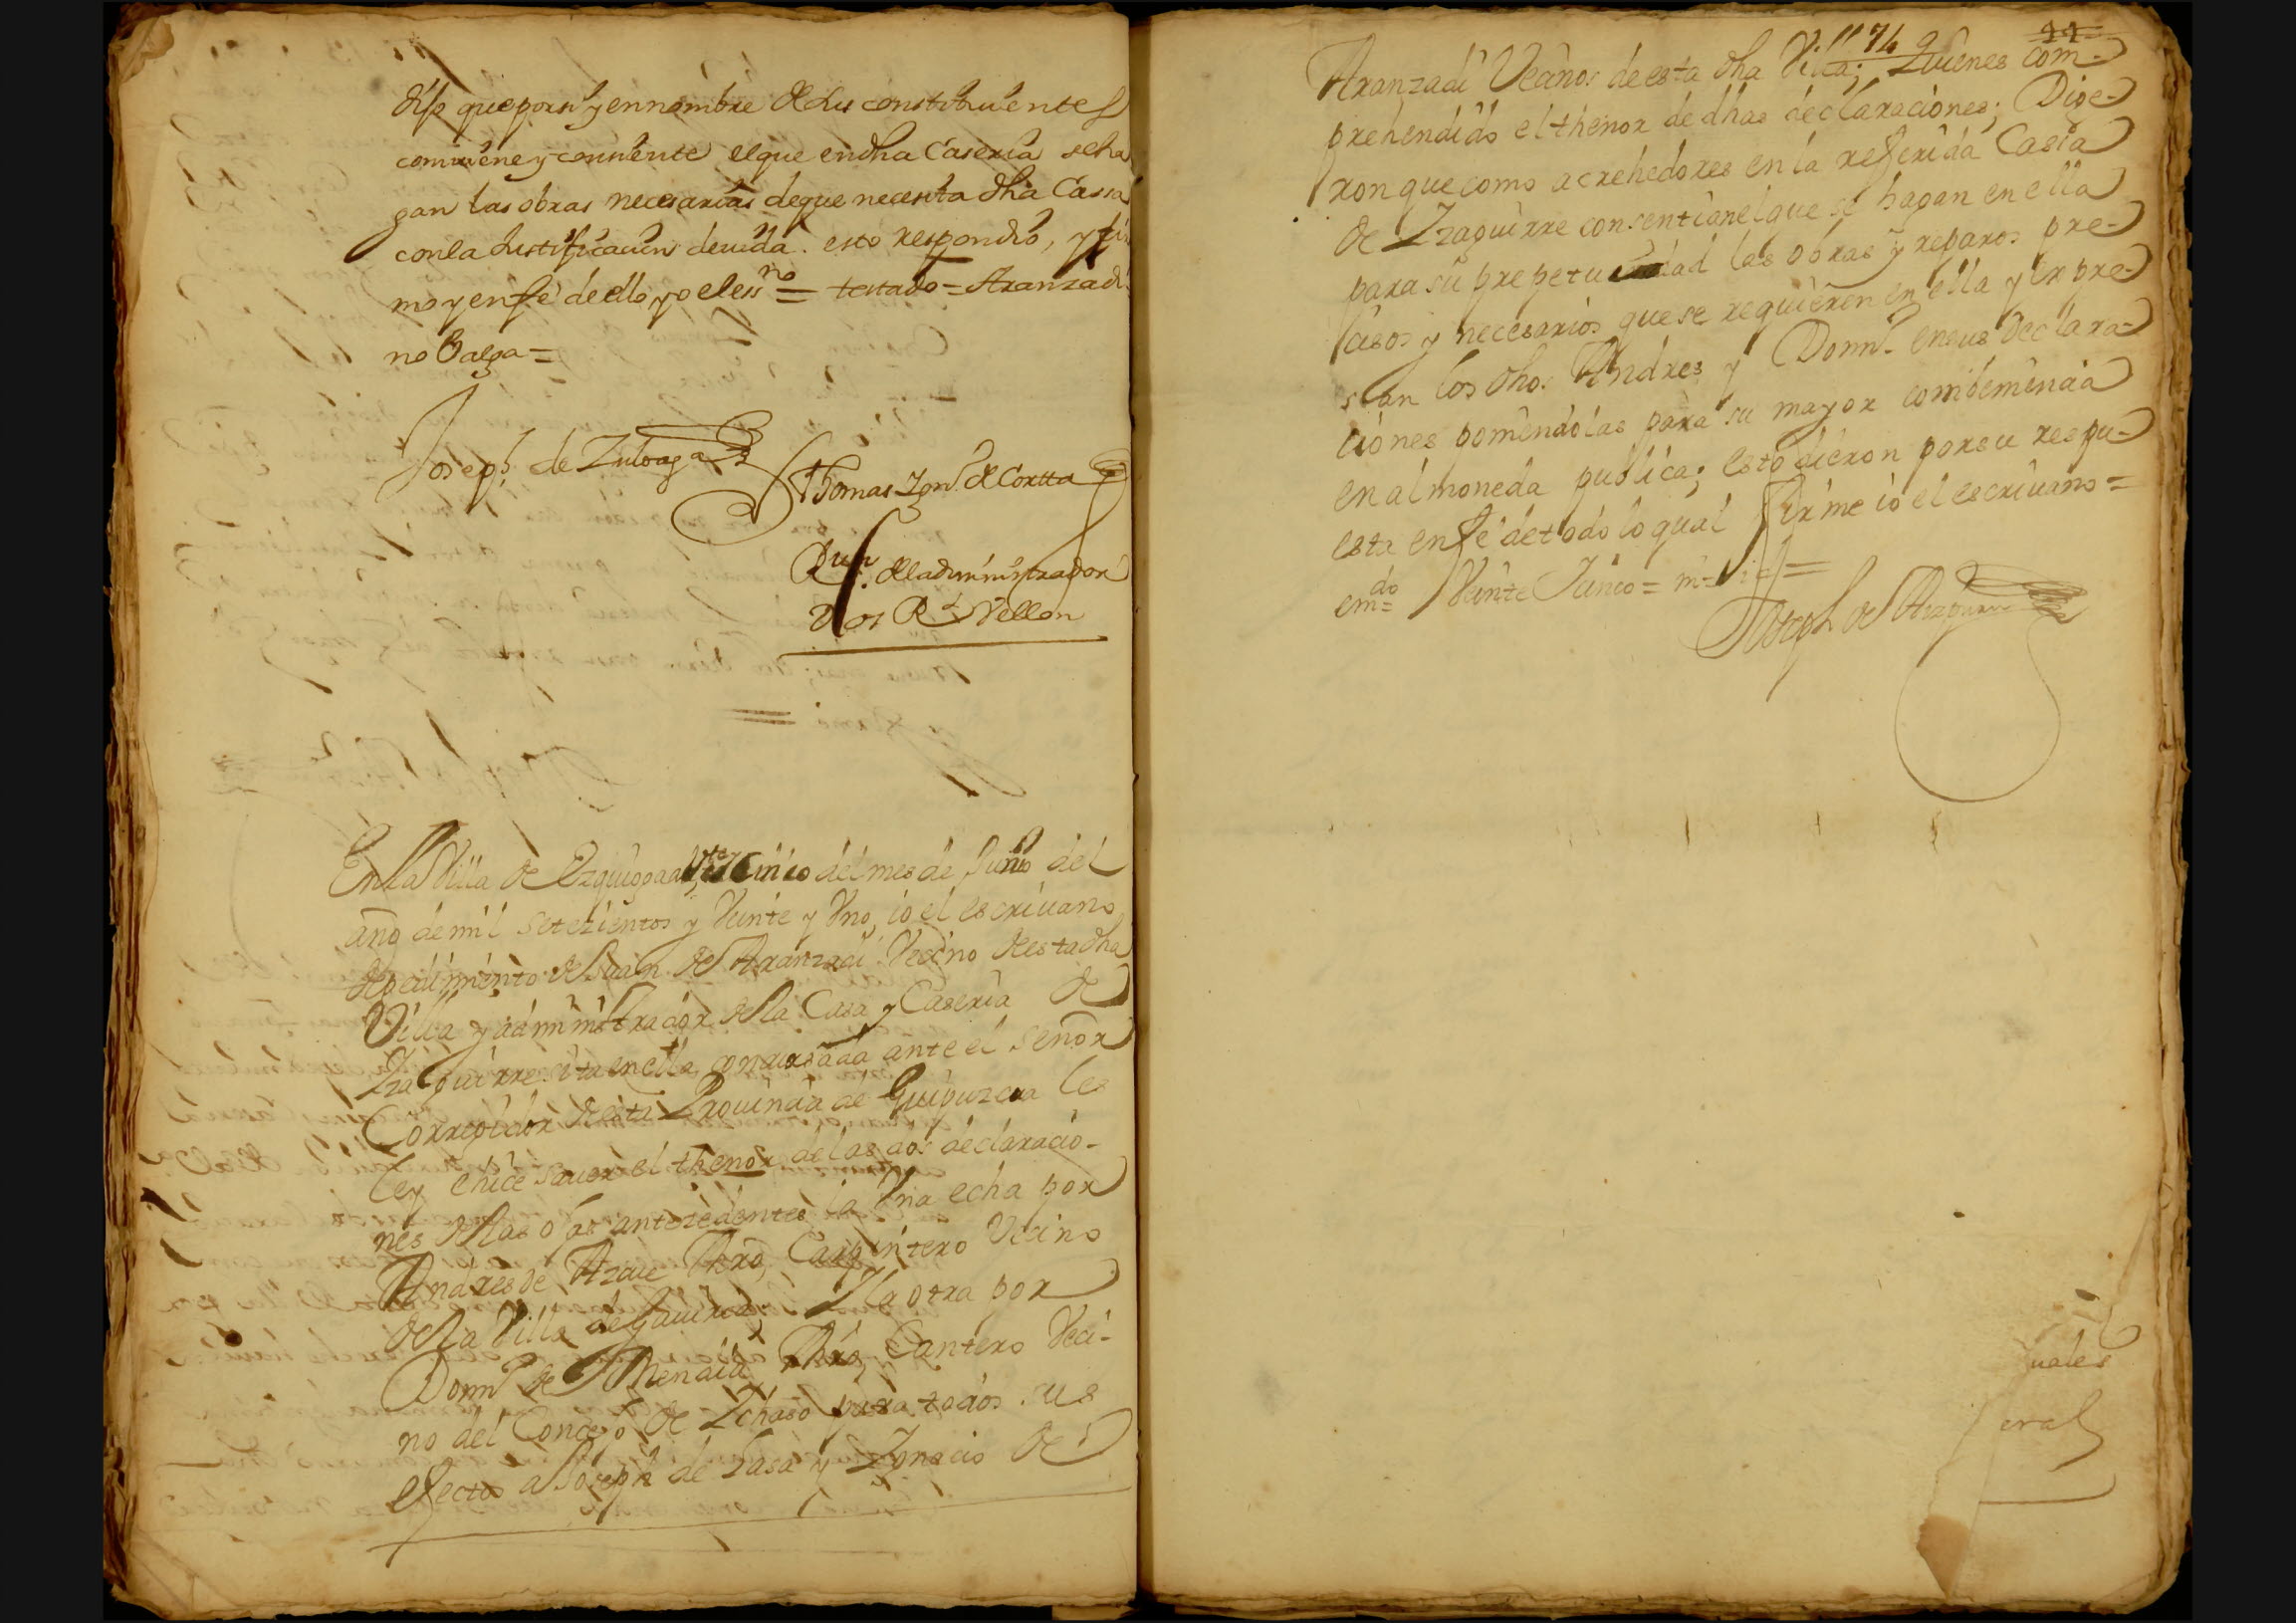 dijo que por si y en nombre de sus constituientes
combiene y consiente el que en dha Caseria se ha
gan las obras necesarias de que necesita dha Cassa
con la Justificacion devida. esto respondio, y fir
mo y en fe de ello yo el essno = testado = Aranzadi
no balga =
Joseph de Zuloaga
Thomas Ign.o de Cortta
del administrador
Dos Rs Vellon
En la Villa de Ezquioga a Vte y Cinco del mes de Junio del
año de mil setezientos y Veinte y Vno, io el escriuano
de pedimiento de Juan de Aranzadi Vecino de esta dha
Villa y administrador de la Casa y Caseria de
Izaguirre sita en ella, concursada ante el señor
Corregidor de esta Prouincia de Guipuzcoa les
ley e hice sauer el thenor de las dos declaracio-
nes de las ojas antezedentes la Vna echa por
Andres de Azcue Mro Carpintero Vecino
de la Villa de Gauiria; Y la otra por
Domn.o de Mendia Mro Cantero Veci-
no del Concejo de Ichaso para todos sus
efectos a Joseph de Lasa y Ignacio de
74
Aranzadi Vecinos de esta dha Villa; Quienes com-
prehendido el thenor de dhas declaraciones; Dije-
ron que como acrehedores en la refferida Casia
de Izaguirre consentian el que se hagan en ella
para su prepetuidad las obras y reparos pre-
cisos y necesarios que se requieren en ella y expre-
san los dhos Andres y Domn.o en sus declara-
ciones poniendolas para su mayor combeniencia
en almoneda publica; esto dieron por su respu-
esta en fe de todo lo qual firme io el escriuano =
emdo = Veinte Junio =
Joseph de Aizpurua
uales
eral